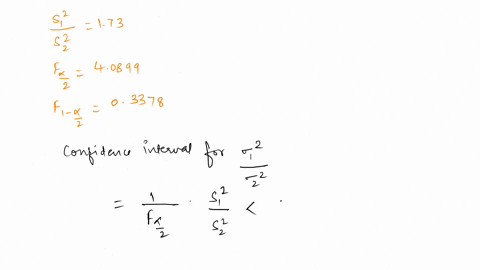 S₁²/S₂² = 1.73
F_{α/2} = 4.0899
F_{1-α/2} = 0.3378
Confidence interval for σ₁²/σ₂²
= 1/F_{α/2} · S₁²/S₂² <